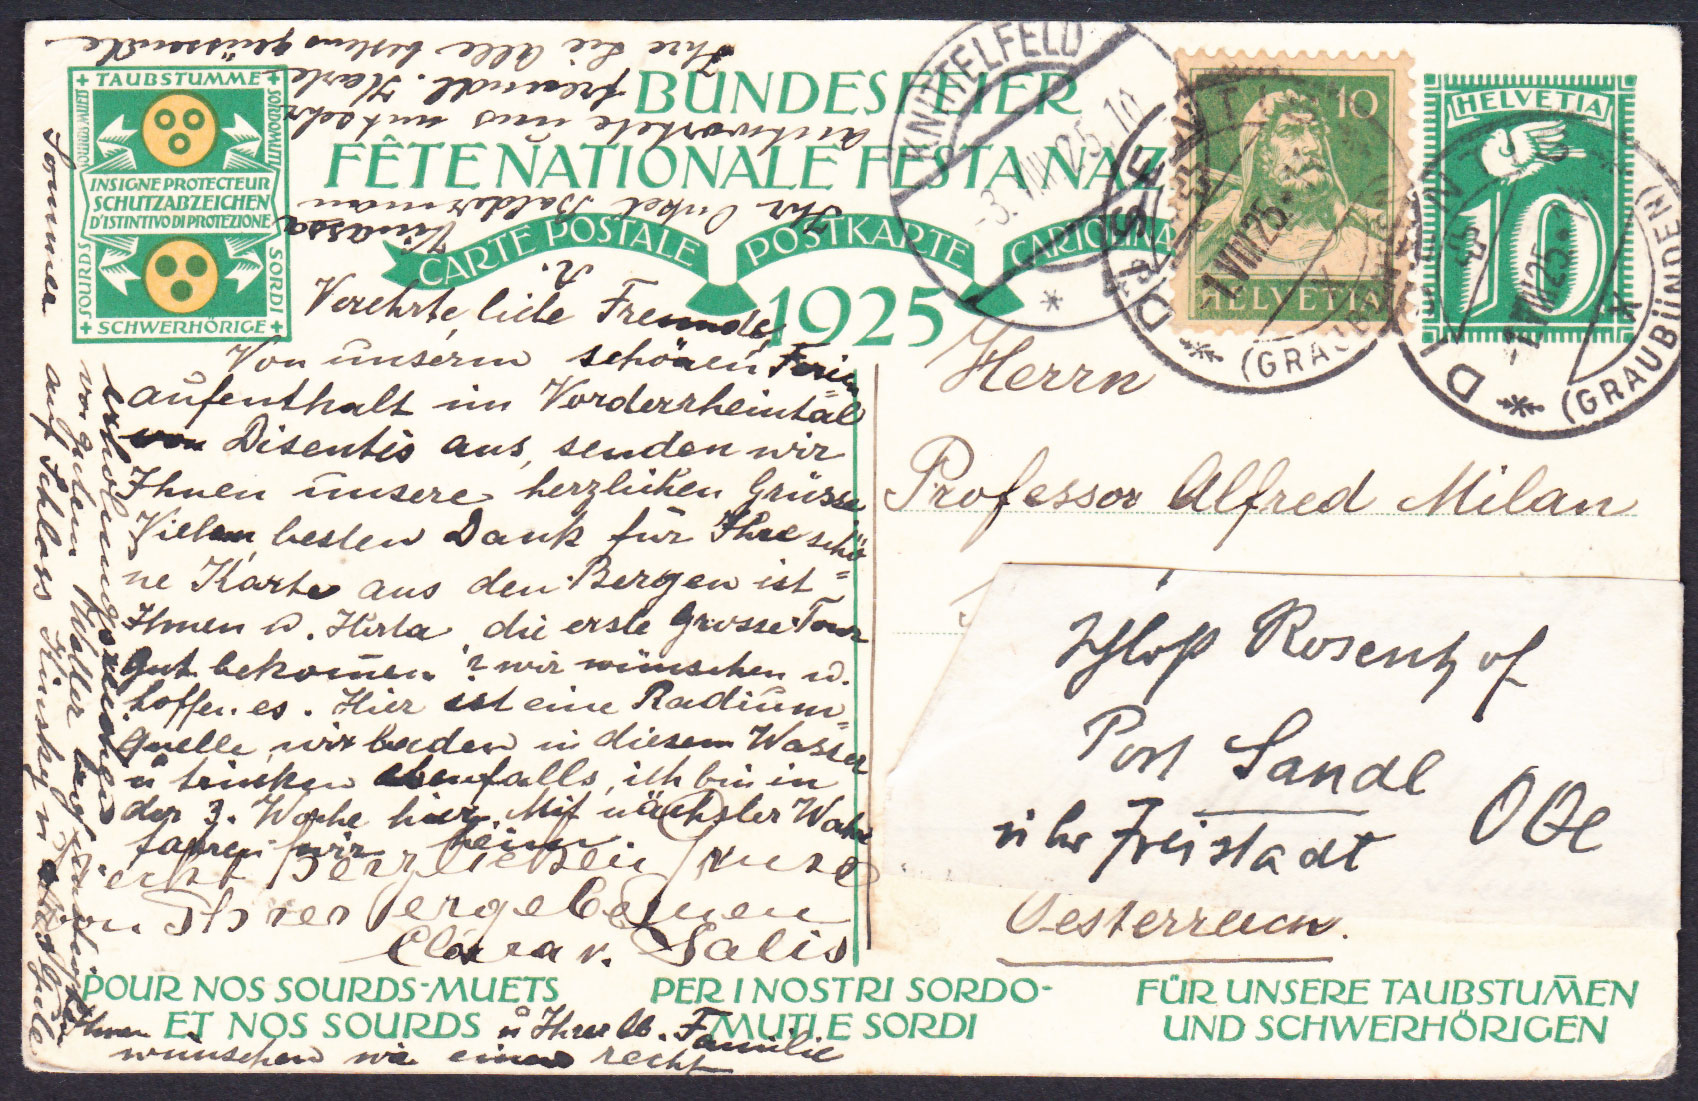 Ihre Sie Alle bestens grüssende
TAUBSTUMME
SOURDS-MUETS
SORDOMUTI
INSIGNE PROTECTEUR
SCHUTZABZEICHEN
D'ISTINTIVO DI PROTEZIONE
SOURDS
SORDI
SCHWERHÖRIGE
BUNDESFEIER
FÊTE NATIONALE FESTA NAZ
CARTE POSTALE
POSTKARTE
CARTOLINA
1925
KNITTELFELD
-3.VIII.25
10
HELVETIA
HELVETIA
10
DISENTIS
1.VIII.25
(GRAUBÜNDEN)
DISENTIS
VIII.25
(GRAUBÜNDEN)
antwortete uns auf sehr
freundl. Karte
Ihr Onkel Baldermann
Verehrte, liebe Freunde,
Von unserm schönen Ferien
aufenthalt im Vorderrheintal
Disentis aus, senden wir
Ihnen unsere herzlichen Grüsse.
Vielen, besten Dank für Ihre schö
ne Karte aus den Bergen ist
Ihnen u. Herta die erste Grosse Tour
gut bekommen? wir wünschen u.
hoffen es. Hier ist eine Radium=
quelle, wir baden in diesem Wasser
u trinken ebenfalls, ich bin in
der 3. Woche hier. Mit nächster Woche
fahren wir heim
herzlichen Gruss
von Ihrer ergebenen
Clara v. Salis
Ihnen u Ihrer lb. Familie
wünschen wir einen recht
erholungsreichen
von gutem Wetter
Sommer auf Schloss
Herrn
Professor Alfred Milan
Schloß Rosenhof
Post Sandl
über Freistadt OÖe
Oesterreich.
POUR NOS SOURDS-MUETS
ET NOS SOURDS
PER I NOSTRI SORDO-
MUTI E SORDI
FÜR UNSERE TAUBSTUMMEN
UND SCHWERHÖRIGEN